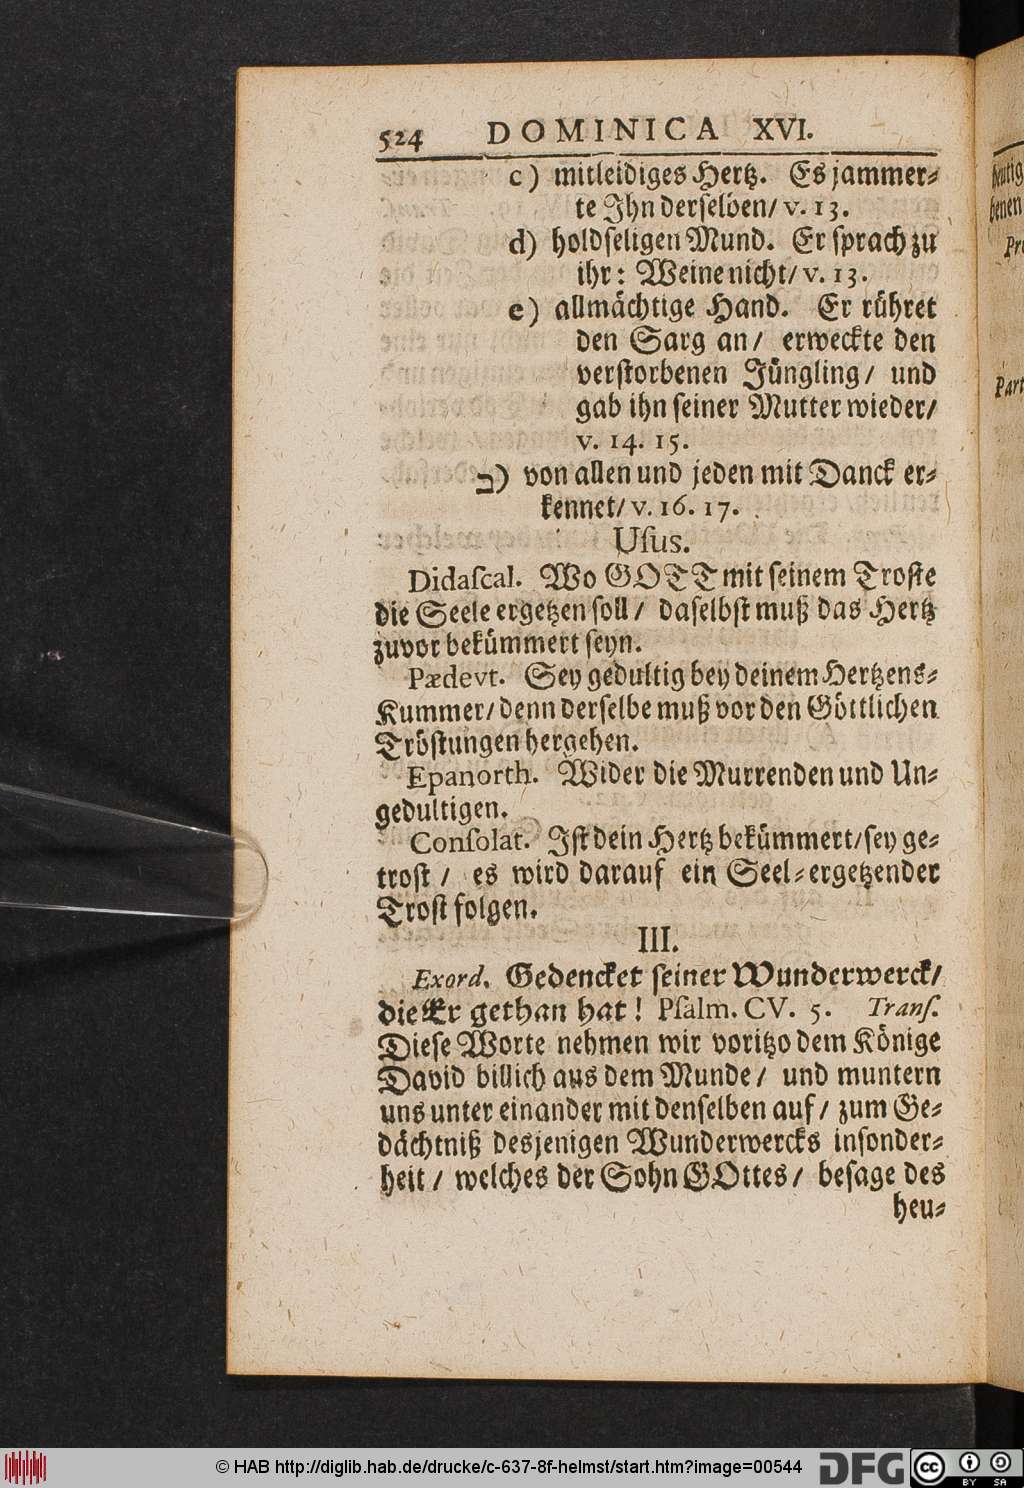 524 DOMINICA XVI.
c) mitleidiges Hertz. Es jammer⸗
te Ihn derselben/ v. 13.
d) holdseligen Mund. Er sprach zu
ihr: Weine nicht/ v. 13.
e) allmächtige Hand. Er rühret
den Sarg an/ erweckte den
verstorbenen Jüngling/ und
gab ihn seiner Mutter wieder/
v. 14. 15.
ב) von allen und jeden mit Danck er⸗
kennet/ v. 16. 17.
Uſus.
Didaſcal. Wo GOTT mit seinem Troste
die Seele ergetzen soll/ daselbst muß das Hertz
zuvor bekümmert seyn.
Pædevt. Sey gedultig bey deinem Hertzens⸗
Kummer/ denn derselbe muß vor den Göttlichen
Tröstungen hergehen.
Epanorth. Wider die Murrenden und Un⸗
gedultigen.
Conſolat. Ist dein Hertz bekümmert/ sey ge⸗
trost/ es wird darauf ein Seel⸗ergetzender
Trost folgen.
III.
Exord. Gedencket seiner Wunderwerck/
die Er gethan hat! Pſalm. CV. 5. Tranſ.
Diese Worte nehmen wir voritzo dem Könige
David billich aus dem Munde/ und muntern
uns unter einander mit denselben auf/ zum Ge⸗
dächtniß desjenigen Wunderwercks insonder⸗
heit/ welches der Sohn GOttes/ besage des
heu⸗
heutig
benen
Pr
Part
© HAB http://diglib.hab.de/drucke/c-637-8f-helmst/start.htm?image=00544
DFG
cc BY SA